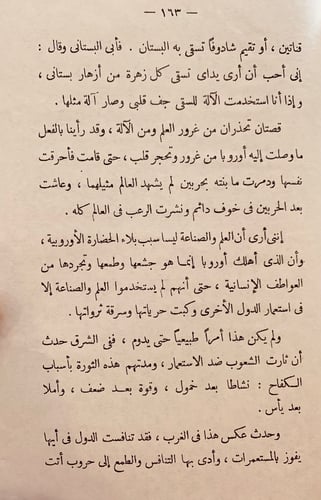 — ١٦٣ —
قناتين ، أو تقيم شادوفًا تسقى به البستان . فأبى البستانى وقال :
إنى أحب أن أرى يداى تسقى كل زهرة من أزهار بستانى ،
وإذا أنا استخدمت الآلة للسقى جف قلبى وصار آلة مثلها .
قصتان تحذران من غرور العلم ومن الآلة ، وقد رأينا بالفعل
ما وصلت إليه أوروبا من غرور وتحجر قلب ، حتى قامت فأحرقت
نفسها ودمرت ما بنته بحربين لم يشهد العالم مثيلهما ، وعاشت
بعد الحربين فى خوف دائم ونشرت الرعب فى العالم كله .
إننى أرى أن العلم والصناعة ليسا سبب بلاء الحضارة الأوروبية ،
وأن الذى أهلك أوروبا إنما هو جشعها وطمعها وتجردها من
العواطف الإنسانية ، حتى أنهم لم يستخدموا العلم والصناعة إلا
فى استعمار الدول الأخرى وكبت حرياتها وسرقة ثرواتها .
ولم يكن هذا أمرًا طبيعيًا حتى يدوم ، ففى الشرق حدث
أن ثارت الشعوب ضد الاستعمار ، ومدتهم هذه الثورة بأسباب
الكفاح : نشاطا بعد خمول ، وقوة بعد ضعف ، وأملا
بعد يأس .
وحدث عكس هذا فى الغرب ، فقد تنافست الدول فى أيها
يفوز بالمستعمرات ، وأدى بها التنافس والطمع إلى حروب أتت